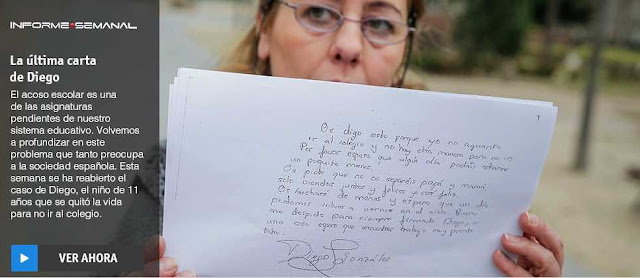 INFORME SEMANAL
La última carta
de Diego
El acoso escolar es una
de las asignaturas
pendientes de nuestro
sistema educativo. Volvemos
a profundizar en este
problema que tanto preocupa
a la sociedad española. Esta
semana se ha reabierto el
caso de Diego, el niño de 11
años que se quitó la vida
para no ir al colegio.
VER AHORA
Os digo esto porque yo no aguanto
ir al colegio y no hay otra manera para no ir
Por favor espero que algún día podáis odiarme
un poquito menos.
Os pido que no os separéis papá y mamá
solo viendoos juntos y felices yo seré feliz.
Os echaré de menos y espero que un día
podamos volver a vernos en el cielo. Bueno
me despido para siempre firmado Diego
una cosa espero que encuentres trabajo muy pronto
Diego González